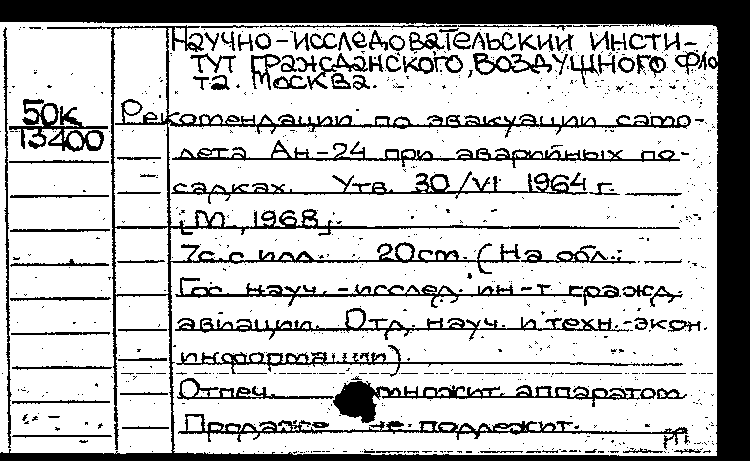 Научно-исследовательский инсти-
тут гражданского, воздушного фло
та. Москва.
50к
13400
Рекомендации по эвакуации само-
лета Ан-24 при аварийных по-
садках. Утв. 30/VI 1964 г.
[М., 1968].
7с. с илл. 20 см. (На обл.:
Гос. науч.-исслед. ин-т гражд.
авиации. Отд. науч. и техн.-экон.
информации).
Отпеч. множит. аппаратом
Продаже не подлежит.